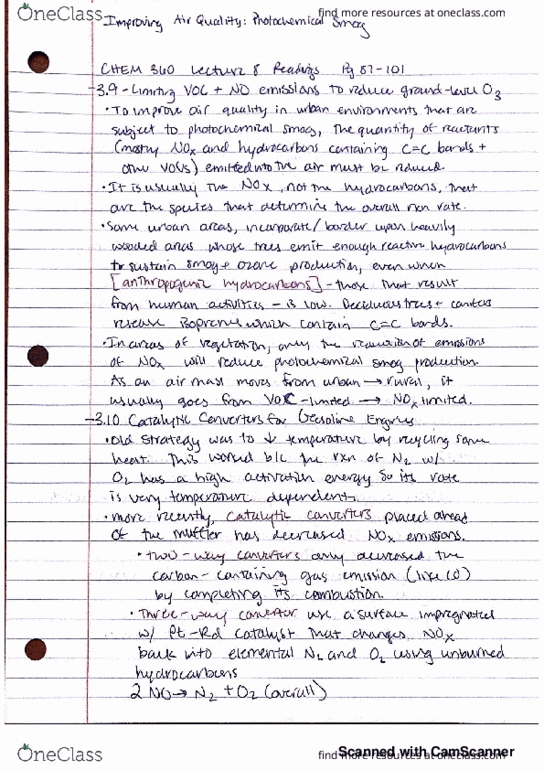 OneClass
find more resources at oneclass.com
Improving Air Quality: Photochemical Smog
CHEM 360 Lecture 8 Readings Pg 87-101
-3.9-Limiting VOC + NO emissions to reduce ground-level O3
• To improve air quality in urban environments that are
subject to photochemical smog, the quantity of reactants
(mostly NOx and hydrocarbons containing C=C bonds +
other VOCs) emitted into the air must be reduced.
• It is usually the NOx, not the hydrocarbons, that
are the species that determine the overall rxn rate.
• Some urban areas, incorporate/border upon heavily
wooded areas whose trees emit enough reactive hydrocarbons
to sustain smog + ozone production, even when
[anthropogenic hydrocarbons] - those that result
from human activities - is low. Deciduous trees +
release Isoprene which contain C=C bonds.
• In areas of vegetation, only the reduction of emissions
of NOx will reduce photochemical smog production.
As an air mass moves from urban → rural, it
usually goes from VOC-limited → NOx limited.
-3.10 Catalytic Converters for Gasoline Engines
• Old strategy was to ↓ temperature by recycling some
heat. This worked b/c the rxn of N2 w/
O2 has a high activation energy so its rate
is very temperature dependent.
• more recently, catalytic converters placed ahead
of the muffler has decreased NOx emissions.
• two-way converters only decreased the
carbon-containing gas emission (like CO)
by completing its combustion.
• Three-way converter use a surface impregnated
w/ Pt-Rd catalyst that changes NOx
back into elemental N2 and O2 using unburned
hydrocarbons
2 NO → N2 + O2 (overall)
OneClass
find more resources at oneclass.com
Scanned with CamScanner